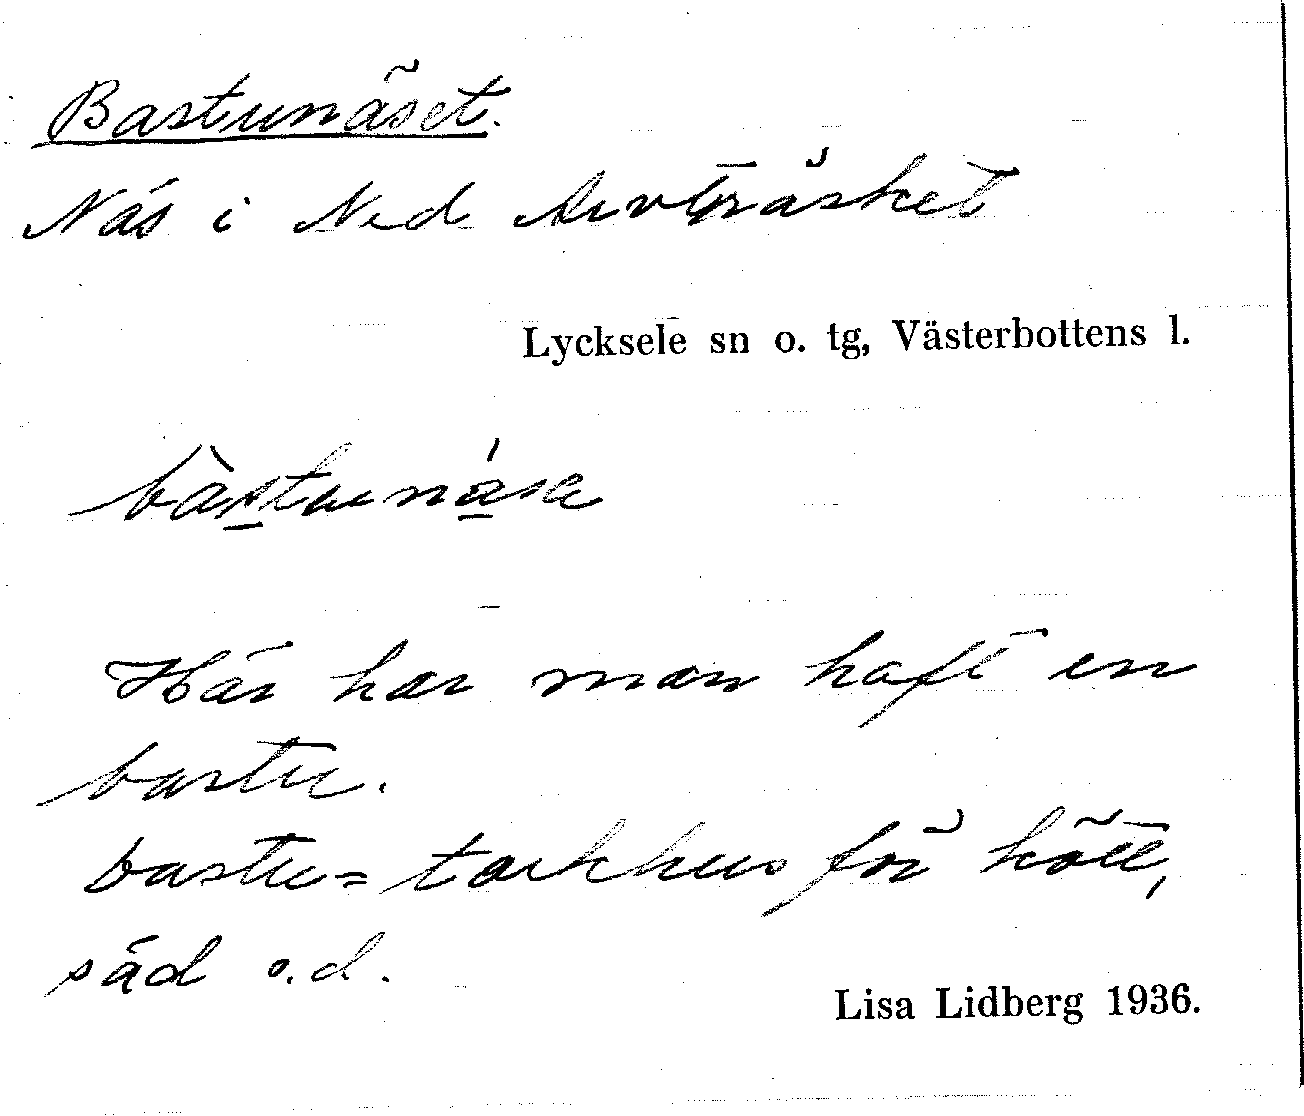 Bastunäset.
Näs i Ned Arvträsket
Lycksele sn o. tg, Västerbottens l.
bàstunä́se
Här har man haft en
bastu.
bastu = torkhus för kött,
säd o.d.
Lisa Lidberg 1936.